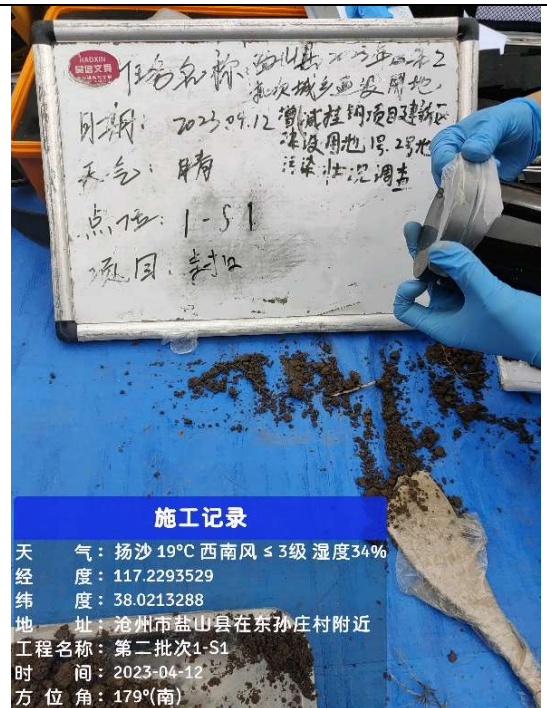 HAOXIN
昊信文具
任务名称:盐山县2023年度第2
批次城乡建设用地
日期:2023.04.12 增减挂钩项目建新区
建设用地1号.2号地
天气:晴 污染状况调查
点位:1-S1
项目:封口
施工记录
天 气:扬沙 19℃ 西南风 ≤ 3级 湿度34%
经 度:117.2293529
纬 度:38.0213288
地 址:沧州市盐山县在东孙庄村附近
工程名称:第二批次1-S1
时 间:2023-04-12
方 位 角:179°(南)